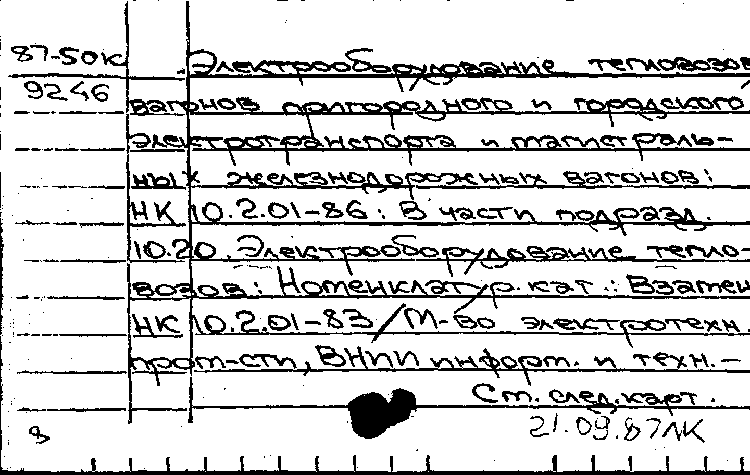 87-50к
9246
Электрооборудование тепловозов,
вагонов пригородного и городского
электротранспорта и магистраль-
ных железнодорожных вагонов:
НК 10.2.01-86: В части подразд.
10.20. Электрооборудование тепло-
возов: Номенклатур. кат.: Взамен
НК 10.2.01-83 / М-во электротехн.
пром-сти, ВНИИ информ. и техн.-
Ст. след. карт.
21.09.87 ЛК
8